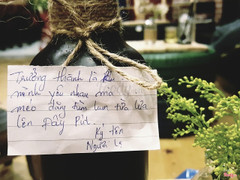 Trưởng thành là khi
mình yêu nhau mà
méo dám tùm lum tùm la
lên Fây Pút...
Ký tên
Người lạ